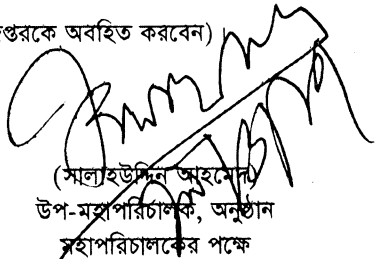 প্তরকে অবহিত করবেন)
(সালাহউদ্দিন আহমেদ)
উপ-মহাপরিচালক, অনুষ্ঠান
মহাপরিচালকের পক্ষে